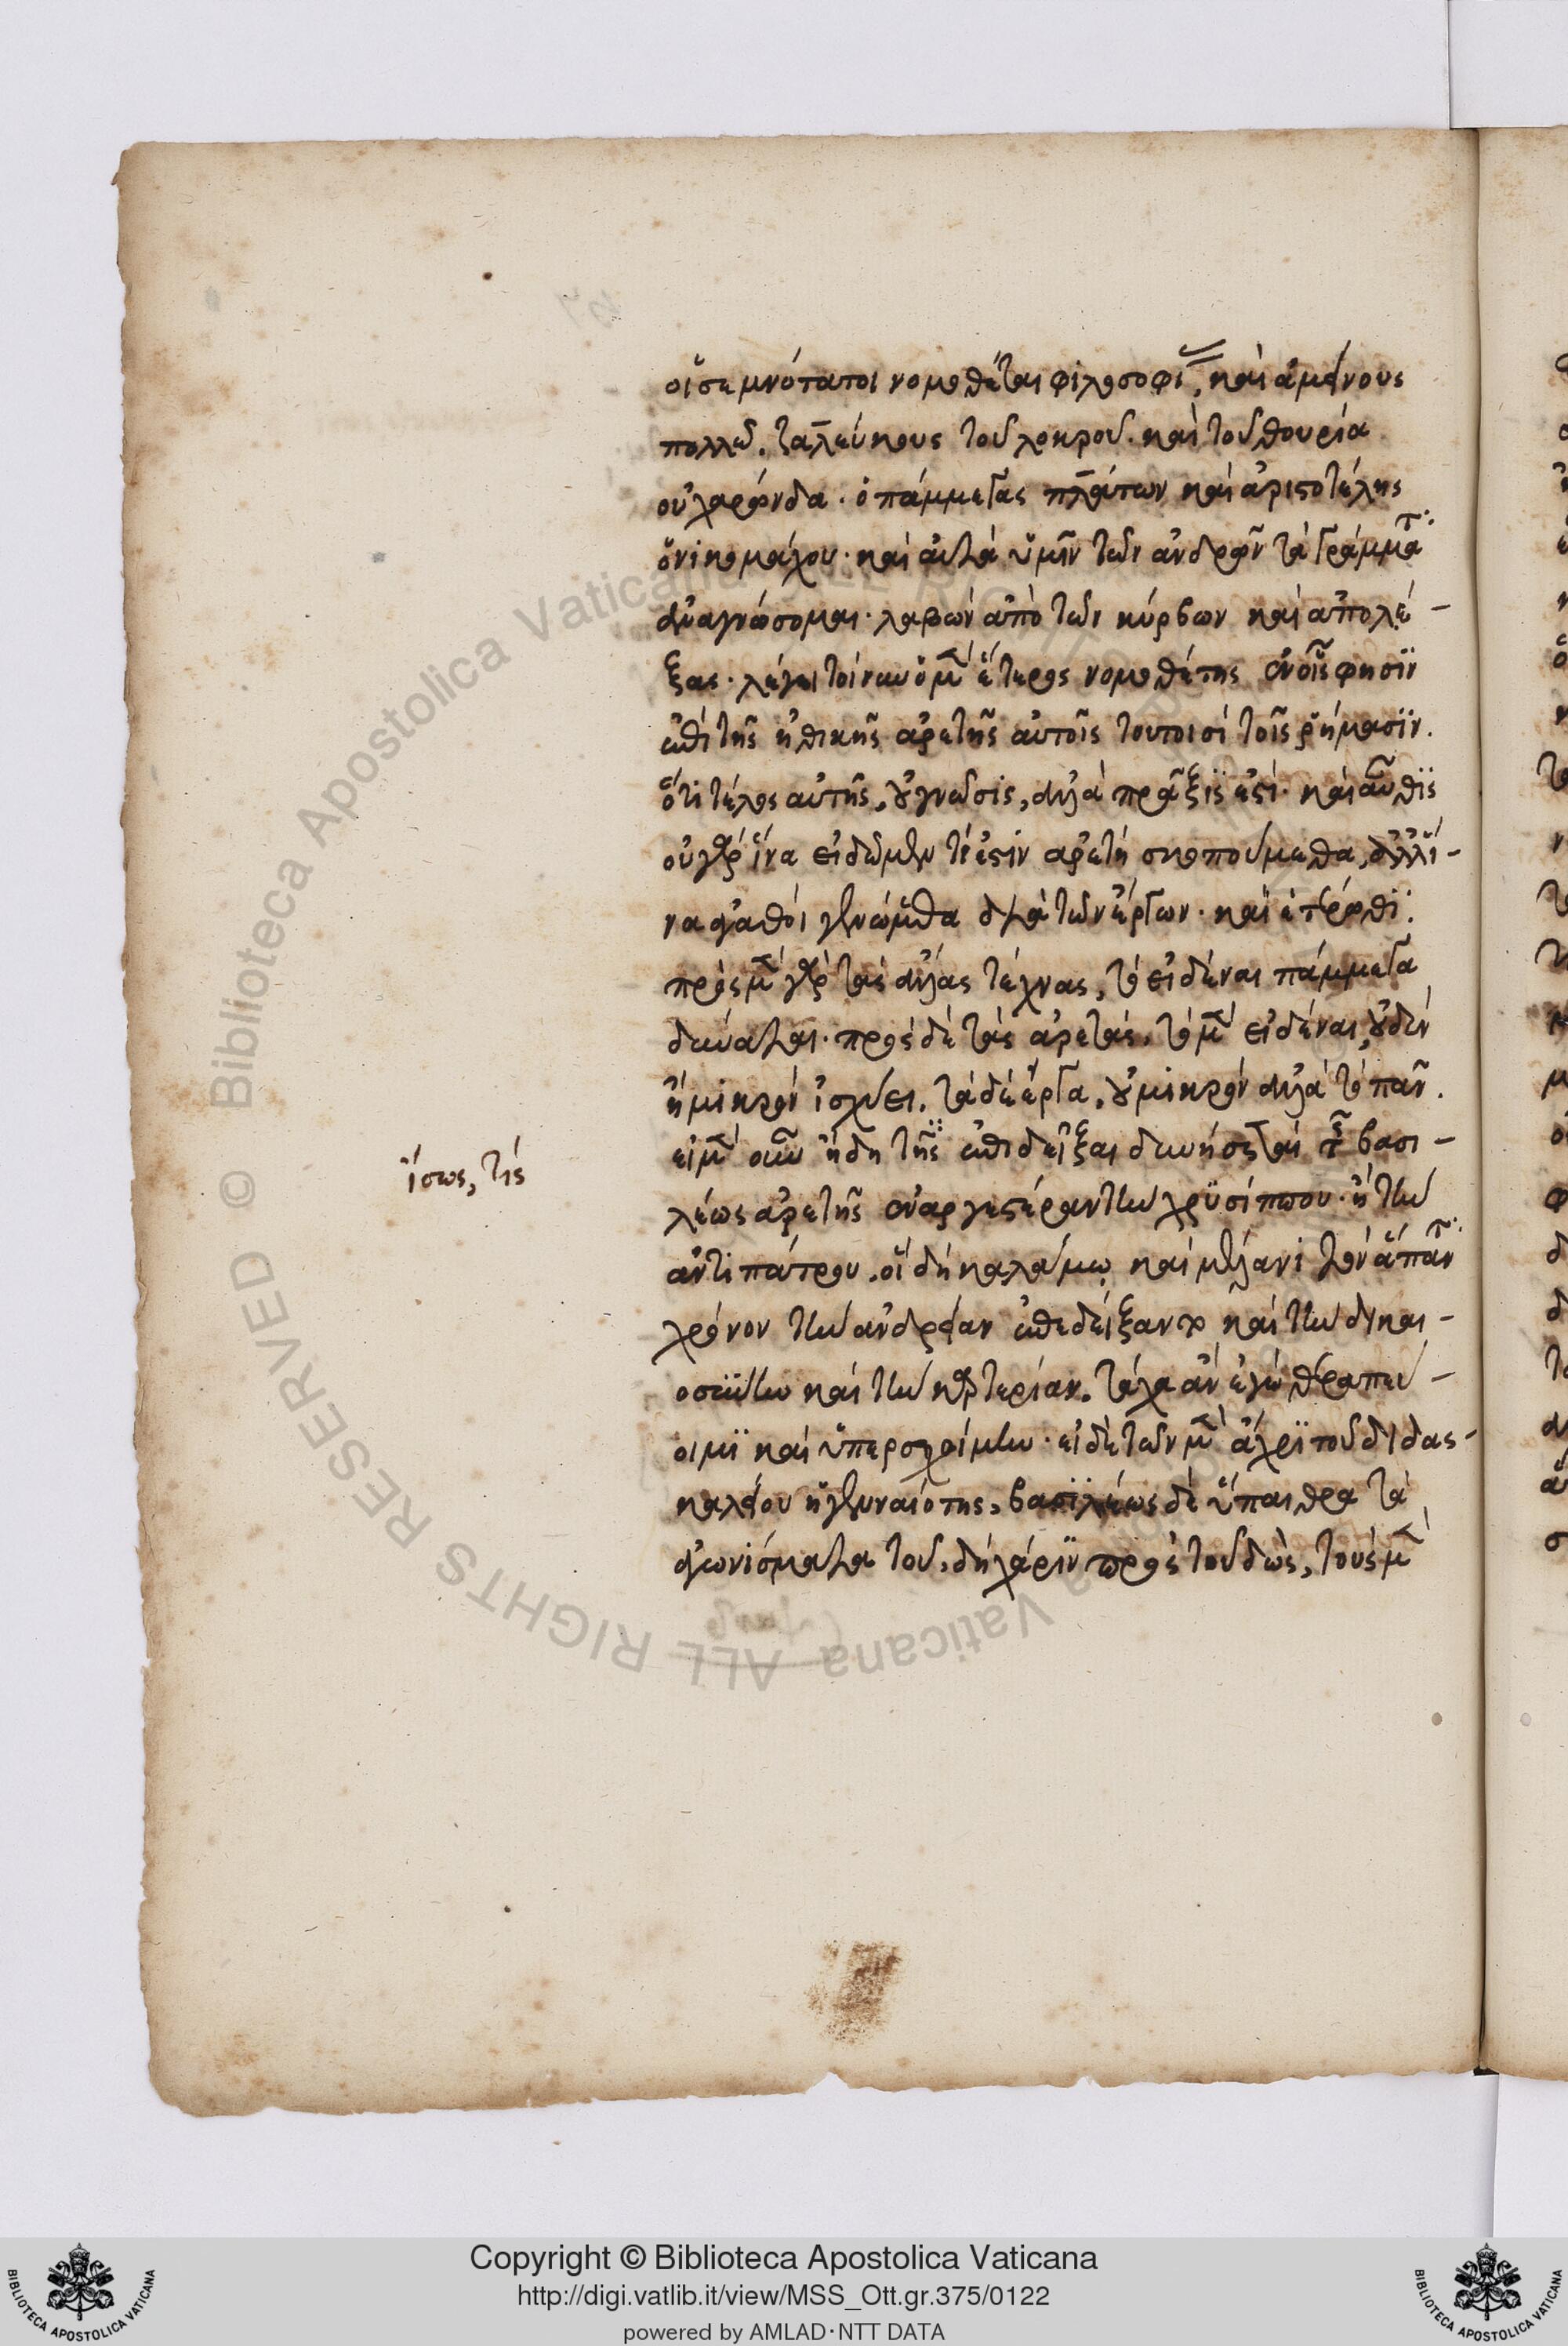 οἱ σεμνότατοι νομοθέται φιλοσοφί, καὶ ἀμείνους
πολλῶ. ζαλεύκους τοῦ λοκροῦ. καὶ τοῦ θουρία
οὐ χαρώνδα. ὁ πάμμεγας πλάτων καὶ ἀριστοτέλης
ὁ νικομάχου. καὶ αὐτὰ ὑμῖν τῶν ἀνδρῶν τὰ γράμματ
ἀναγνώσομαι. λαβὼν ἀπὸ τῶν κύρβων καὶ ἀπολέ-
ξας. λέγει τοίνυν ὁ μὲν ἕτερος νομοθέτης ἐν οἷς φησὶν
ἐπὶ τῆς ἠθικῆς ἀρετῆς αὐτοῖς τουτοισὶ τοῖς ῥήμασιν.
ὅτι τέλος αὐτῆς, οὐ γνῶσις, ἀλλὰ πρᾶξις ἐστι. καὶ αὖθις
οὐ γὰρ ἵνα εἰδῶμεν τί ἐστιν ἀρετὴ σκοπούμεθα, ἀλλ' ἵ-
να ἀγαθοὶ γενώμεθα διὰ τῶν ἔργων. καὶ ἑτέρωθι.
πρὸς μὲν γὰρ τὰς ἄλλας τέχνας, τὸ εἰδέναι πάμμεγα
δύναται. πρὸς δὲ τὰς ἀρετὰς, τὸ μὲν εἰδέναι, οὐδὲν
ἢ μικρὸν ἰσχύει. τὰ δὲ ἔργα, οὐ μικρὸν ἀλλὰ τὸ πᾶν.
εἰ μὲν οὖν ἤδη τῆς ἐπιδεῖξαι δυνήσεται τῆς βασι-
ἴσως, τίς
λέως ἀρετῆς ἐναργεστέραν τὴν χρυσίππου. ἢ τὴν
ἀντιπάτρου. οἳ δὴ καλάμω καὶ μέλανι τὸν ἅπαντ
χρόνον τὴν ἀνδρείαν ἐπεδείξαντο καὶ τὴν δικαι-
οσύνην καὶ τὴν καρτερίαν. τάχα ἂν ἐγὼ θεραπευ-
οιμι καὶ ὑπεροχοίμην. εἰ δὲ τῶν μὲν ἄχρι τοῦ διδας-
καλείου ἡ γενναιότης, βασιλέως δὲ ὕπαιθρα τὰ
ἀγωνίσματα τοῦ, δὴ χάριν πρὸς τοῦ διὸς, τοὺς μὲν
Copyright © Biblioteca Apostolica Vaticana
http://digi.vatlib.it/view/MSS_Ott.gr.375/0122
powered by AMLAD·NTT DATA
BIBLIOTECA APOSTOLICA VATICANA
BIBLIOTECA APOSTOLICA VATICANA
© Biblioteca Apostolica Vaticana ALL RIGHTS RESERVED